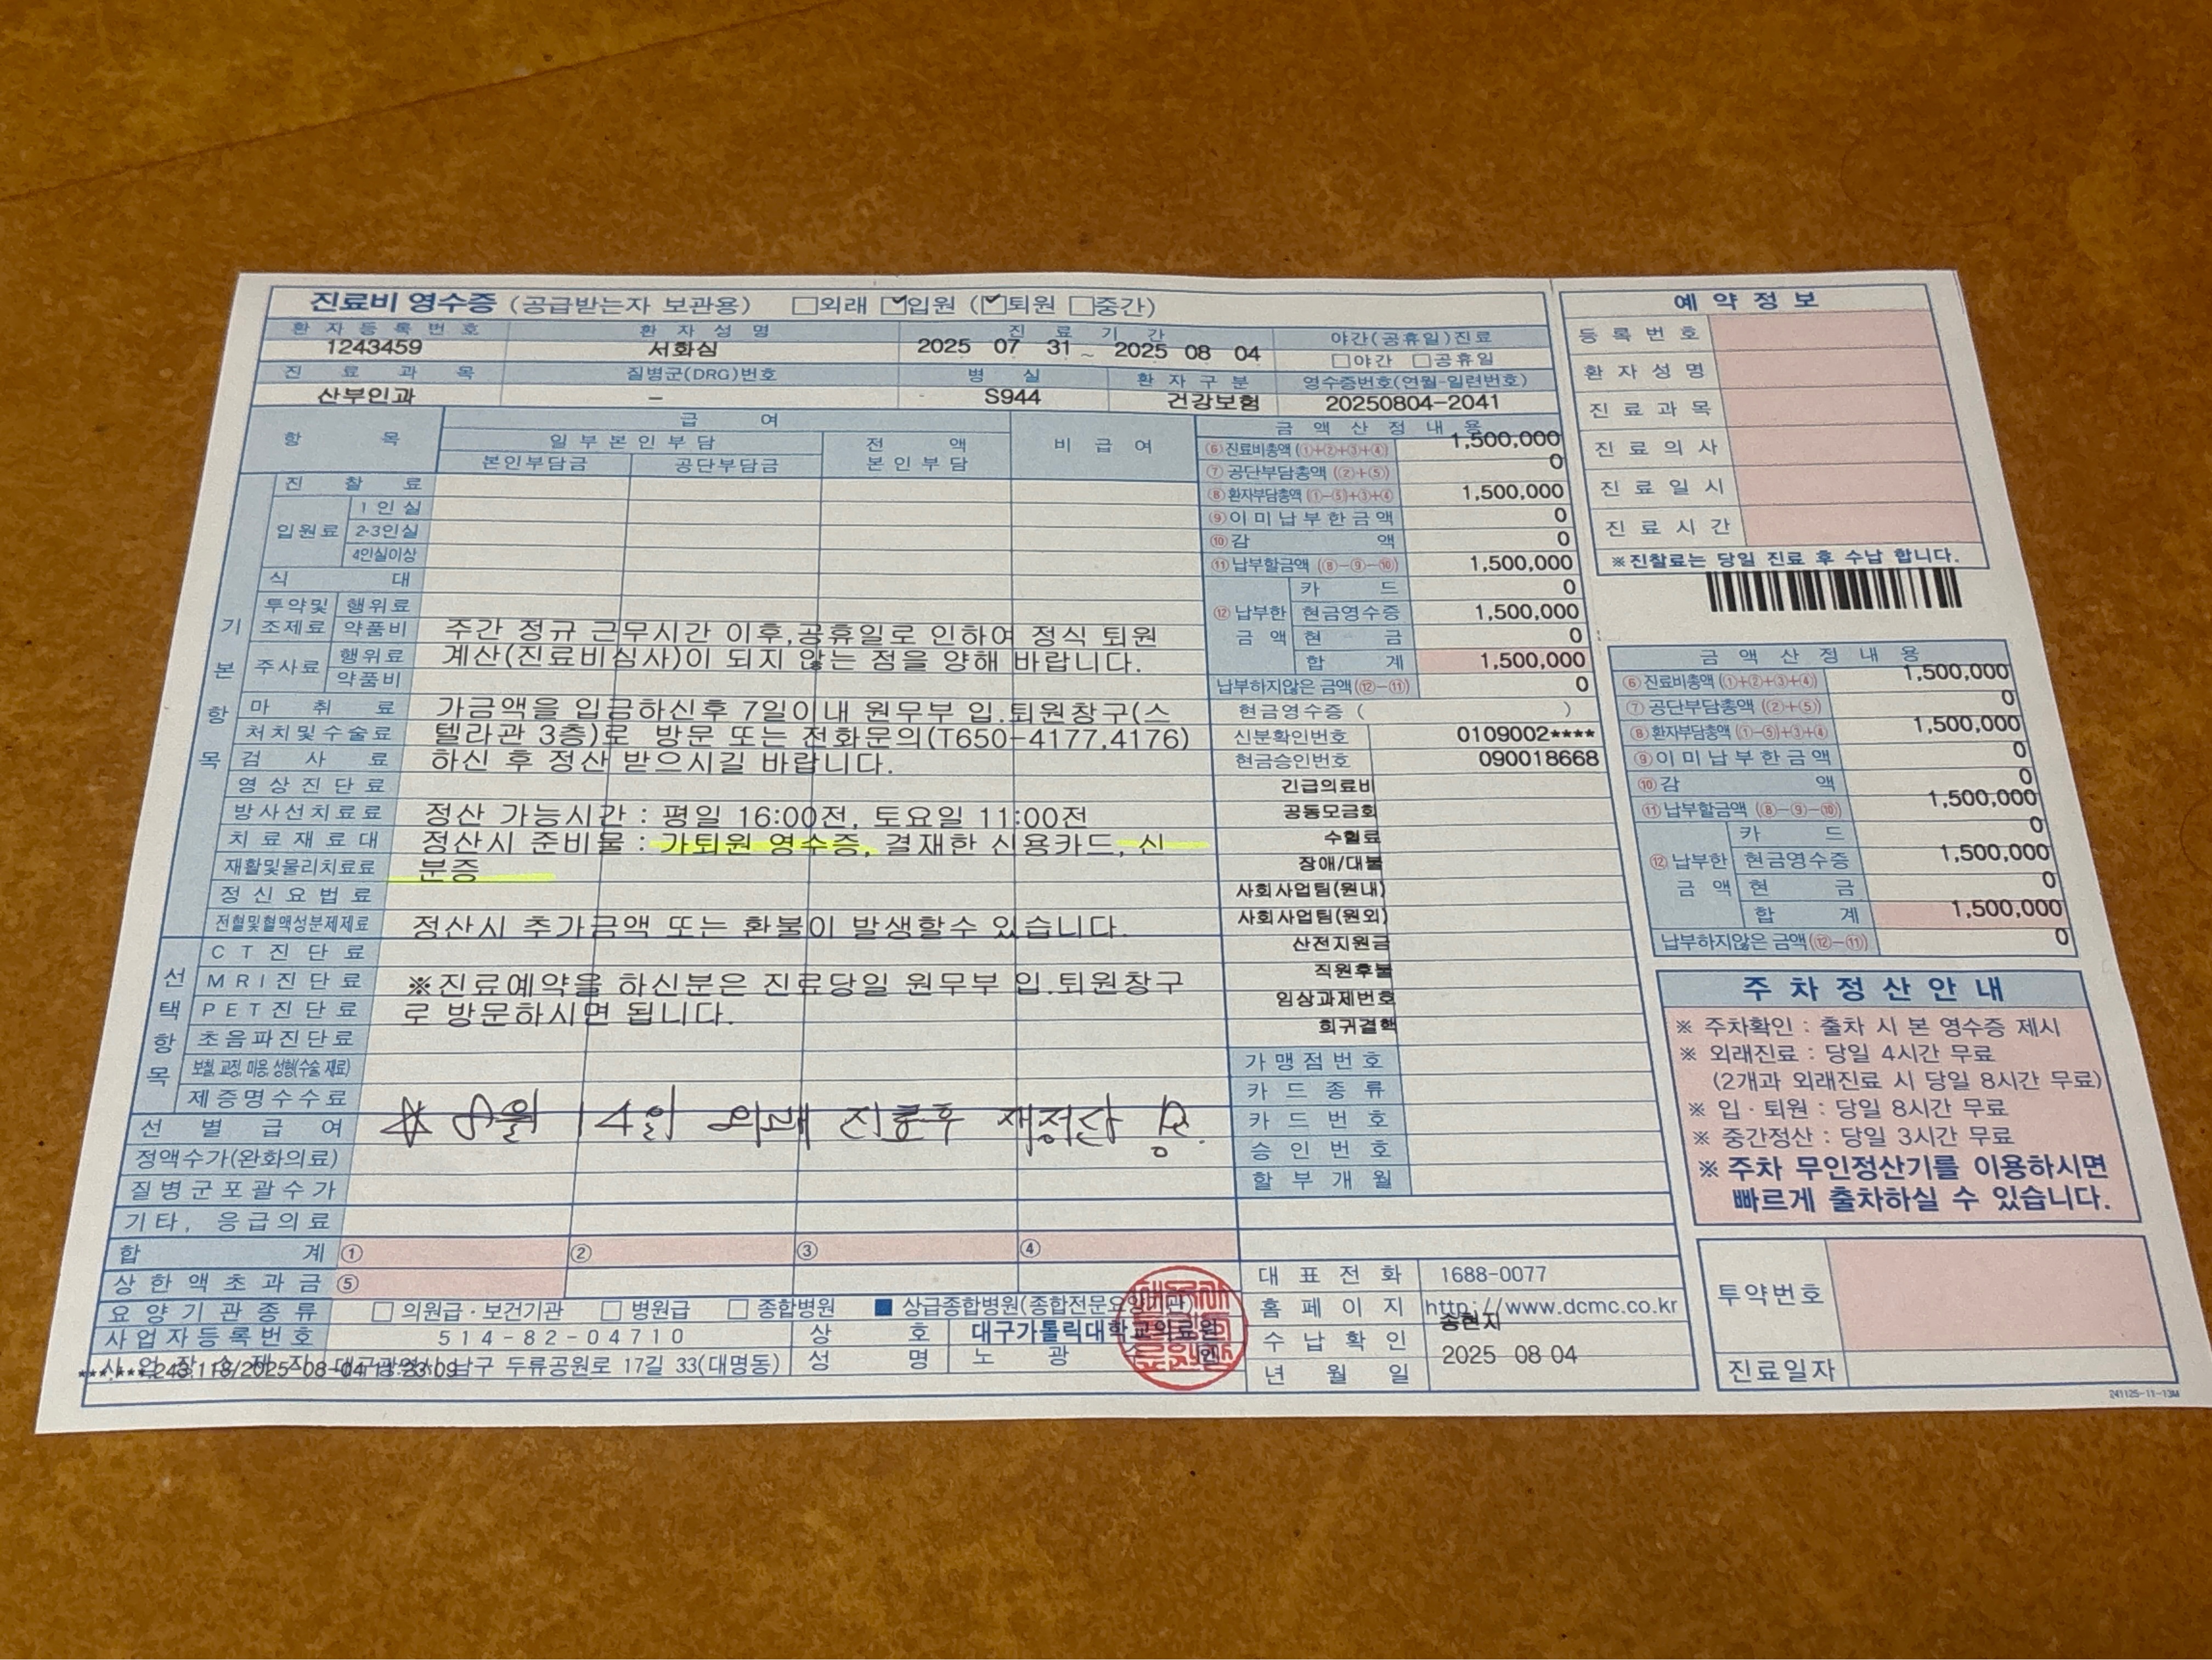 진료비 영수증 (공급받는자 보관용) □외래 ☑입원 (☑퇴원 □중간)
환자등록번호 환자성명 진료기간 야간(공휴일)진료
1243459 서화심 2025 07 31 ~ 2025 08 04 □야간 □공휴일
진료과목 질병군(DRG)번호 병실 환자구분 영수증번호(연월-일련번호)
산부인과 - S944 건강보험 20250804-2041
항목 급여 비급여 금액산정내용
일부본인부담 전액본인부담
본인부담금 공단부담금
기본항목
진찰료
입원료 1인실
2-3인실
4인실이상
식대
투약및조제료 행위료
약품비
주사료 행위료
약품비
마취료
처치및수술료
검사료
영상진단료
방사선치료료
치료재료대
재활및물리치료료
정신요법료
전혈및혈액성분제제료
선택항목
CT진단료
MRI진단료
PET진단료
초음파진단료
보철,교정,미용,성형(수술 재료)
제증명수수료
선별급여
정액수가(완화의료)
질병군포괄수가
기타, 응급의료
합계 ① ② ③ ④
상한액초과금 ⑤
주간 정규 근무시간 이후,공휴일로 인하여 정식 퇴원
계산(진료비심사)이 되지 않는 점을 양해 바랍니다.
가금액을 입금하신후 7일이내 원무부 입.퇴원창구(스
텔라관 3층)로 방문 또는 전화문의(T650-4177,4176)
하신 후 정산 받으시길 바랍니다.
정산 가능시간 : 평일 16:00전, 토요일 11:00전
정산시 준비물 : 가퇴원 영수증, 결재한 신용카드, 신
분증
정산시 추가금액 또는 환불이 발생할수 있습니다.
※진료예약을 하신분은 진료당일 원무부 입.퇴원창구
로 방문하시면 됩니다.
8월 14일 외래 진료후 재정산
⑥진료비총액 (①+②+③+④) 1,500,000
⑦공단부담총액 (②+⑤) 0
⑧환자부담총액 (①-⑤)+③+④ 1,500,000
⑨이미납부한금액 0
⑩감액 0
⑪납부할금액 (⑧-⑨-⑩) 1,500,000
⑫납부한금액 카드 0
현금영수증 1,500,000
현금 0
합계 1,500,000
납부하지않은 금액(⑫-⑪) 0
현금영수증 ( )
신분확인번호 0109002****
현금승인번호 090018668
긴급의료비
공동모금회
수혈료
장애/대불
사회사업팀(원내)
사회사업팀(원외)
산전지원금
직원후불
임상과제번호
희귀결핵
가맹점번호
카드종류
카드번호
승인번호
할부개월
요양기관종류 □의원급·보건기관 □병원급 □종합병원 ■상급종합병원(종합전문요양기관)
사업자등록번호 514-82-04710 상호 대구가톨릭대학교의료원
사업장소재지 대구광역시 남구 두류공원로 17길 33(대명동) 성명 노광수
대표전화 1688-0077
홈페이지 http://www.dcmc.co.kr
수납확인 송현지
년월일 2025 08 04
예약정보
등록번호
환자성명
진료과목
진료의사
진료일시
진료시간
※진찰료는 당일 진료 후 수납 합니다.
금액산정내용
⑥진료비총액 (①+②+③+④) 1,500,000
⑦공단부담총액 (②+⑤) 0
⑧환자부담총액 (①-⑤)+③+④ 1,500,000
⑨이미납부한금액 0
⑩감액 0
⑪납부할금액 (⑧-⑨-⑩) 1,500,000
⑫납부한금액 카드 0
현금영수증 1,500,000
현금 0
합계 1,500,000
납부하지않은 금액(⑫-⑪) 0
주차정산안내
※ 주차확인 : 출차 시 본 영수증 제시
※ 외래진료 : 당일 4시간 무료
(2개과 외래진료 시 당일 8시간 무료)
※ 입·퇴원 : 당일 8시간 무료
※ 중간정산 : 당일 3시간 무료
※ 주차 무인정산기를 이용하시면
빠르게 출차하실 수 있습니다.
투약번호
진료일자
241125-11-13M